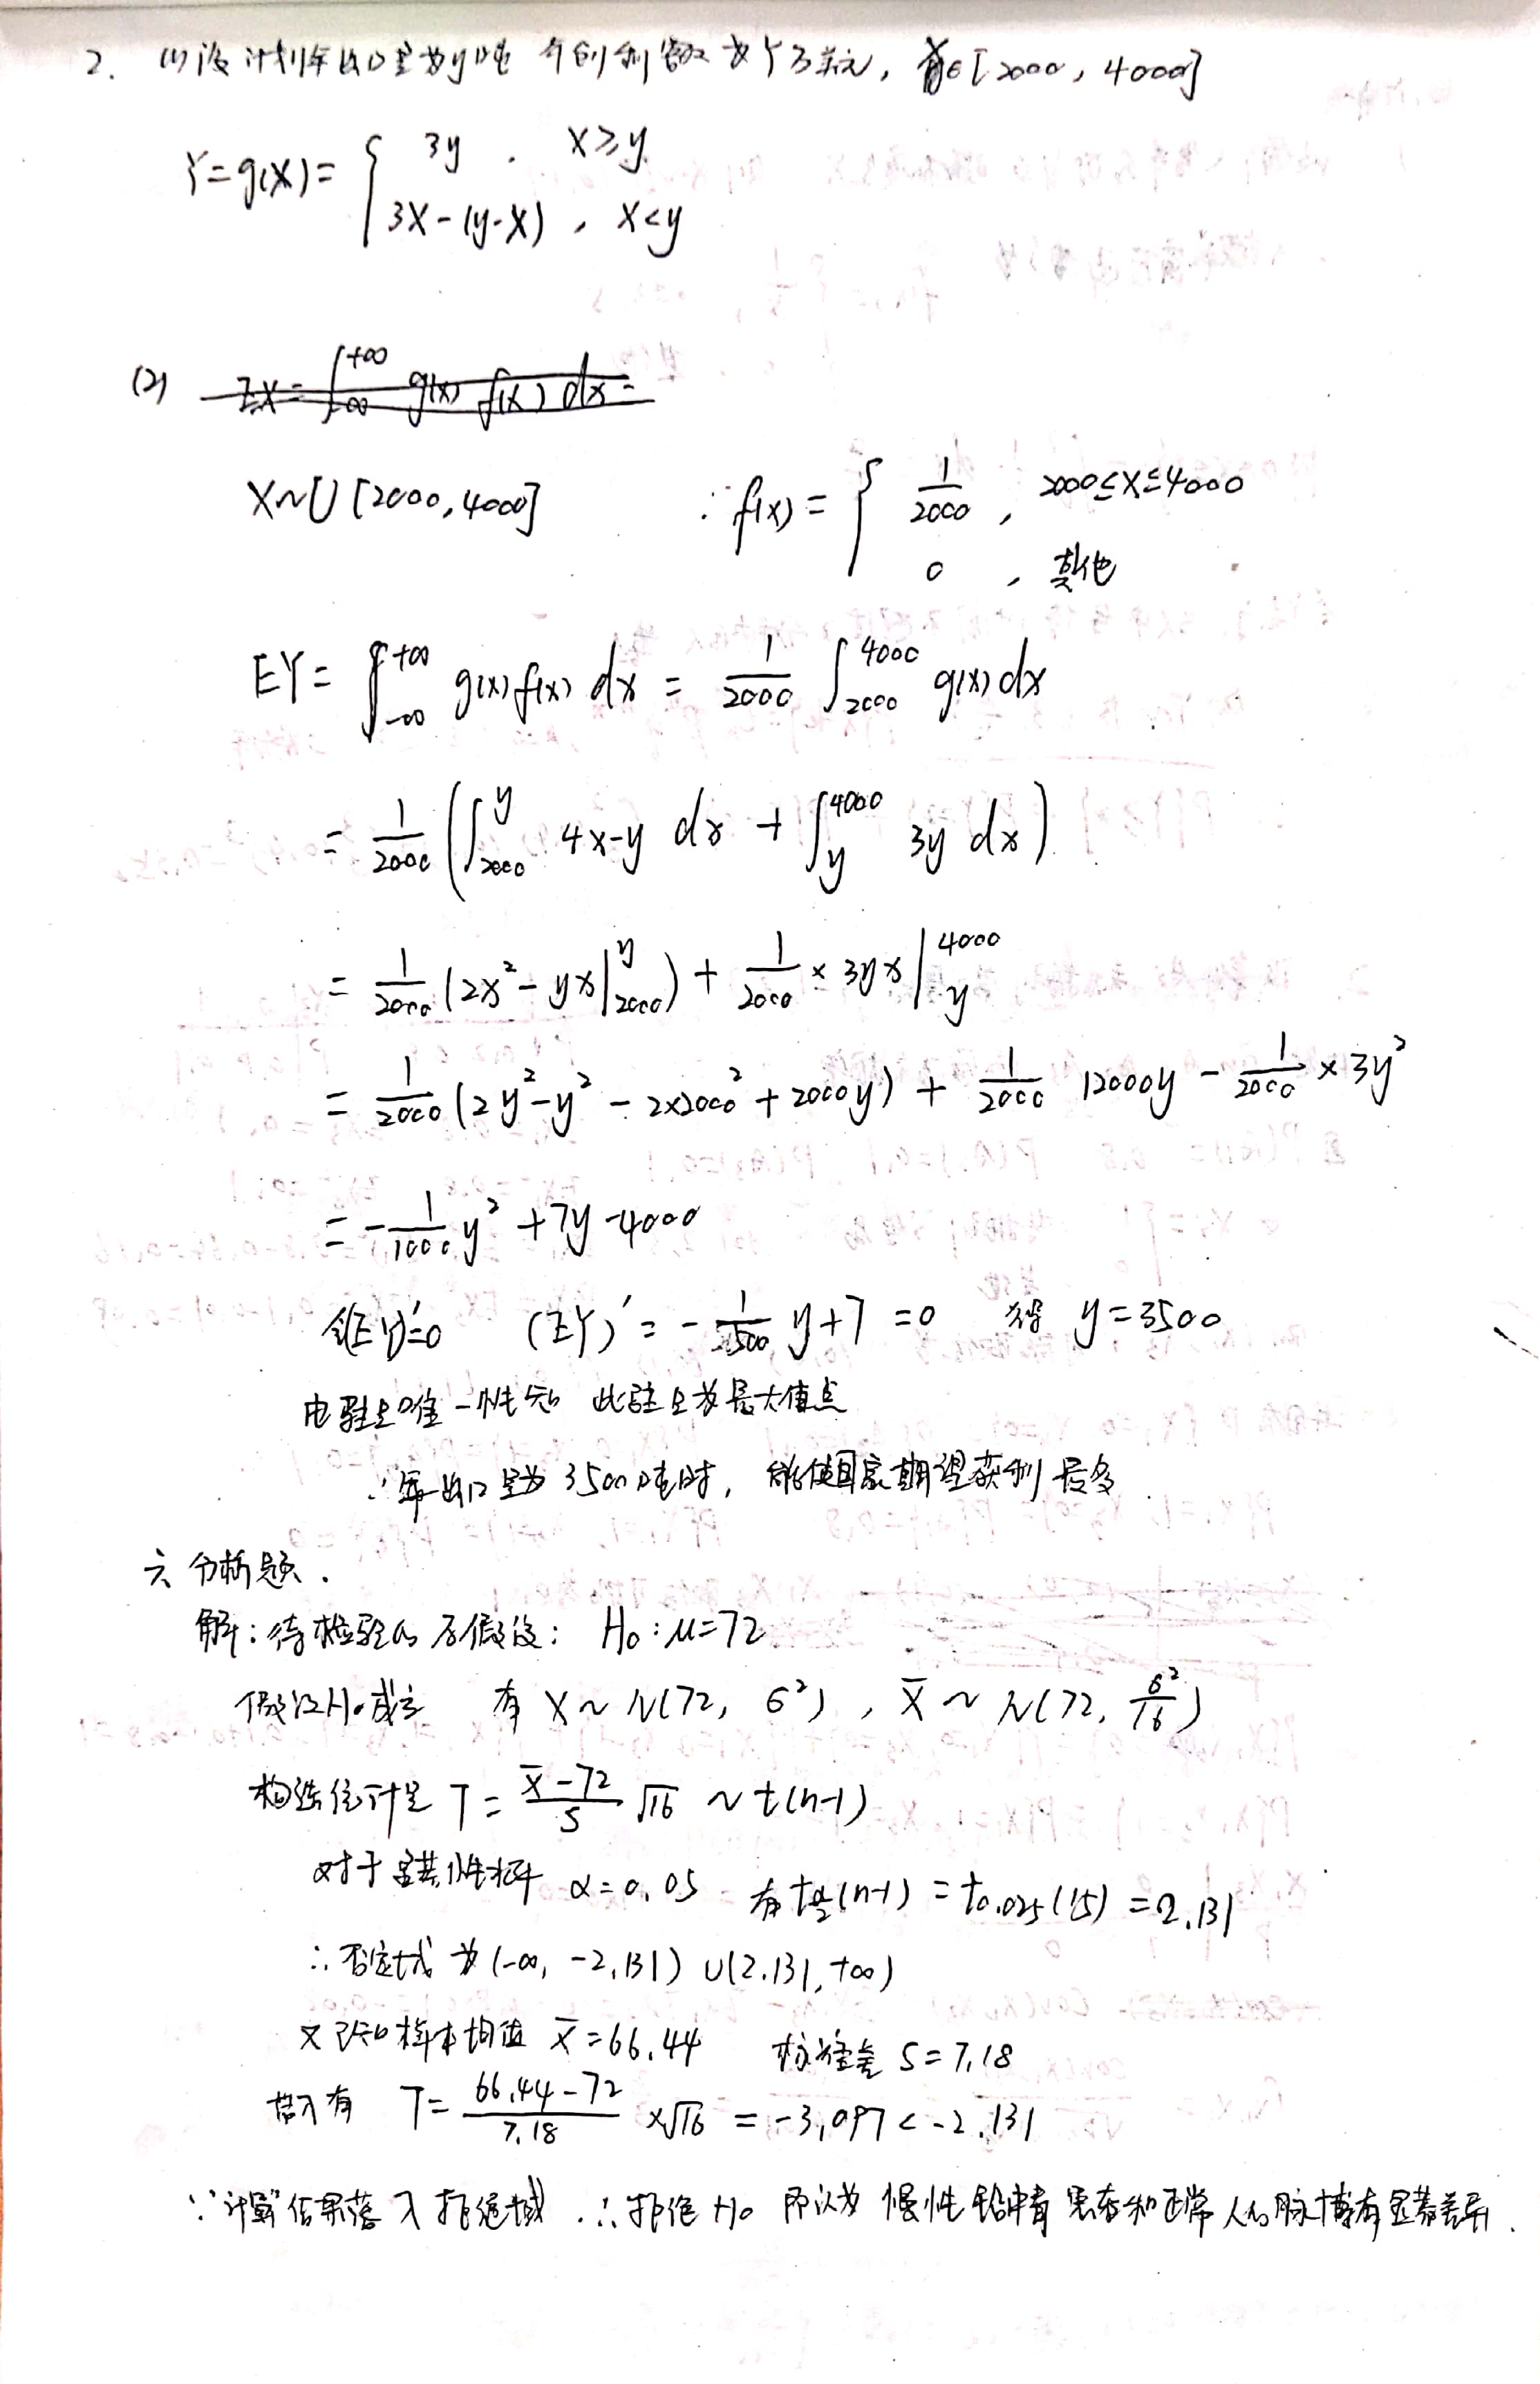 2. (1) 设计划年出口量为y吨 年创利额为Y万美元, y∈[2000, 4000]
Y=g(X)= { 3y , X≥y
3X-(y-X) , X<y
(2) EX=∫_{-∞}^{+∞} g(x) f(x) dx=
X~U[2000,4000] ∴ f(x)= { 1/2000 , 2000≤x≤4000
0 , 其他
EY= ∫_{-∞}^{+∞} g(x)f(x) dx = 1/2000 ∫_{2000}^{4000} g(x)dx
= 1/2000 (∫_{2000}^{y} 4x-y dx + ∫_{y}^{4000} 3y dx)
= 1/2000 (2x²-yx|_{2000}^{y}) + 1/2000 × 3yx|_{y}^{4000}
= 1/2000 (2y²-y² - 2×2000² + 2000y) + 1/2000 12000y - 1/2000 × 3y²
= -1/1000 y² + 7y -4000
令(EY)'=0 (EY)' = - 1/500 y+7 =0 得 y=3500
由驻点唯一性知 此驻点为最大值点
∴年出口量为3500吨时, 能使国家期望获利最多
六 分析题.
解:待检验的原假设: H₀:μ=72
假设H₀成立 有 X~N(72, σ²) , X̄ ~ N(72, σ²/16)
构造统计量 T = (X̄-72)/S √16 ~ t(n-1)
对于显著性水平 α=0.05 有 t_{α/2}(n-1) = t_{0.025}(15) =2.131
∴否定域为(-∞, -2.131) ∪(2.131, +∞)
又已知样本均值 x̄=66.44 标准差 S=7.18
带入有 T= (66.44-72)/7.18 ×√16 = -3.097 < -2.131
∵计算结果落入拒绝域 ∴拒绝H₀ 即认为 慢性铅中毒患者和正常人的脉搏有显著差异.